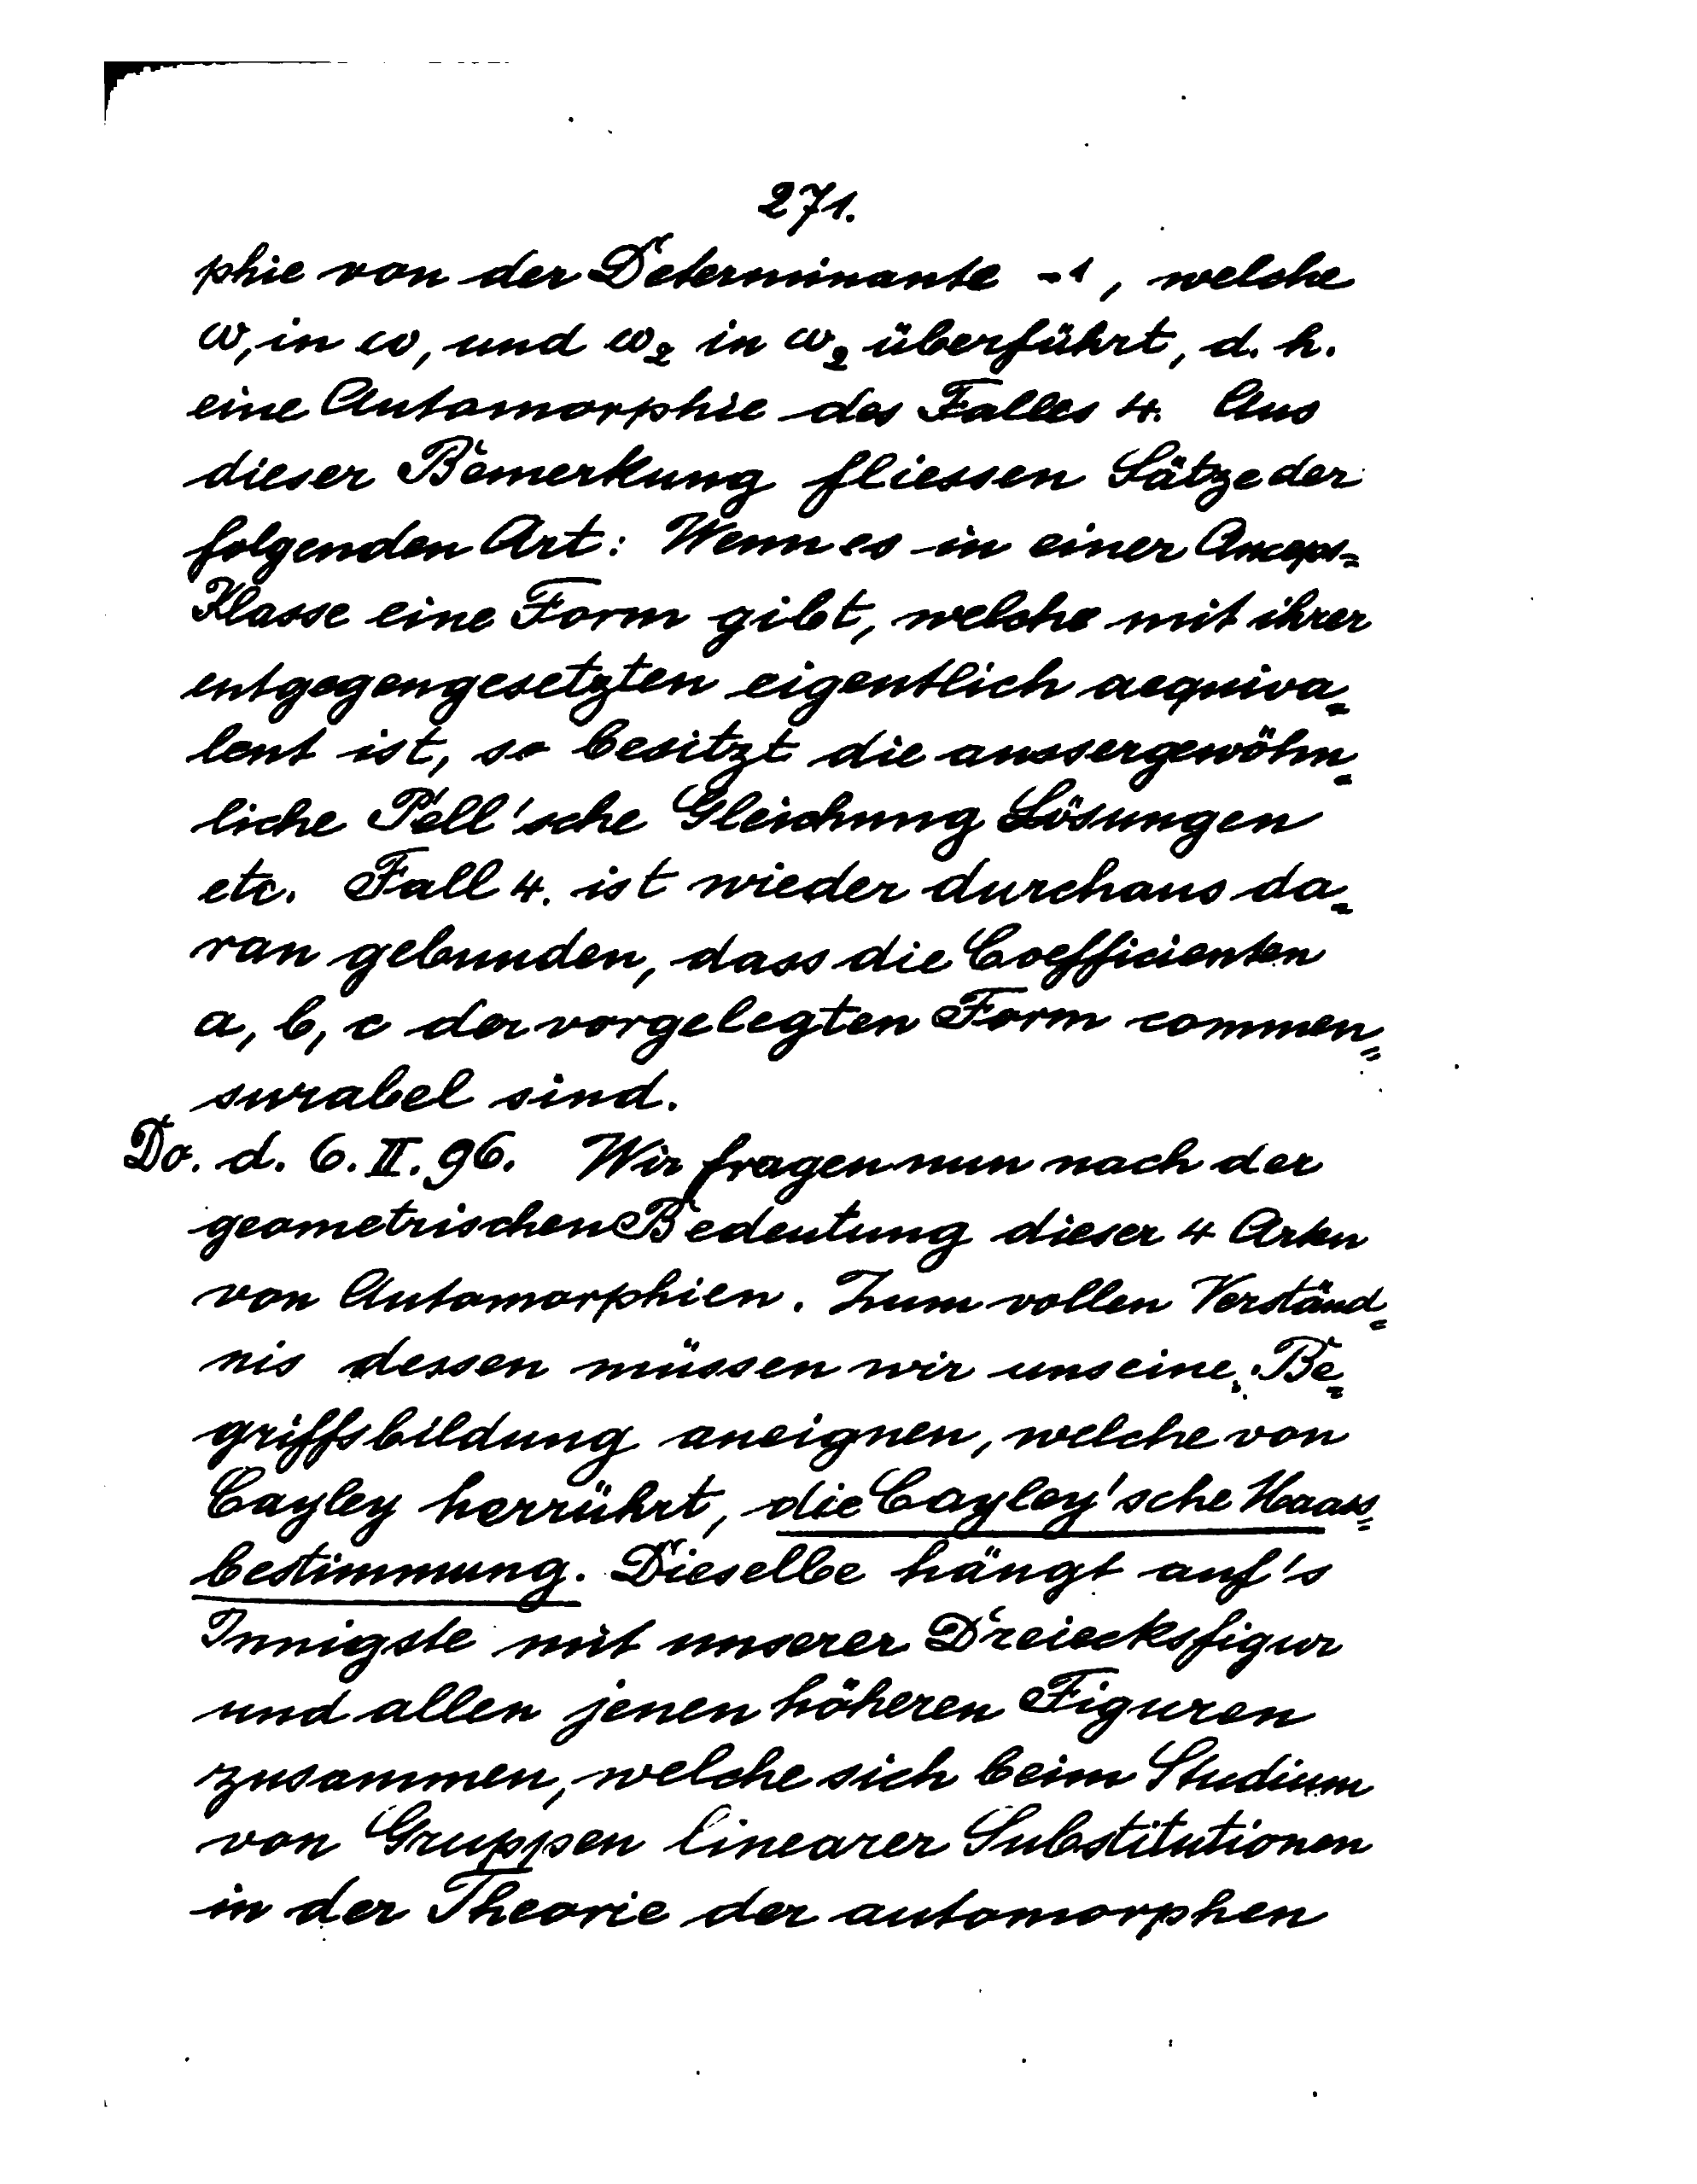 271.
phie von der Determinante -1, welche
ω₁ in ω₁ und ω₂ in ω₂ überführt, d. h.
eine Automorphie des Falles 4. Aus
dieser Bemerkung fliessen Sätze der
folgenden Art: Wenn es in einer Anceps=
Klasse eine Form gibt, welche mit ihrer
entgegengesetzten eigentlich aequiva=
lent ist, so besitzt die aussergewöhn=
liche Pell'sche Gleichung Lösungen
etc. Fall 4. ist wieder durchaus da=
ran gebunden, dass die Coefficienten
a, b, c der vorgelegten Form commen=
surabel sind.
Do. d. 6. II. 96. Wir fragen nun nach der
geometrischen Bedeutung dieser 4 Arten
von Automorphien. Zum vollen Verständ=
nis dessen müssen wir uns eine Be=
griffsbildung aneignen, welche von
Cayley herrührt, die Cayley'sche Maass=
bestimmung. Dieselbe hängt auf's
Innigste mit unserer Dreiecksfigur
und allen jenen höheren Figuren
zusammen, welche sich beim Studium
von Gruppen linearer Substitutionen
in der Theorie der automorphen